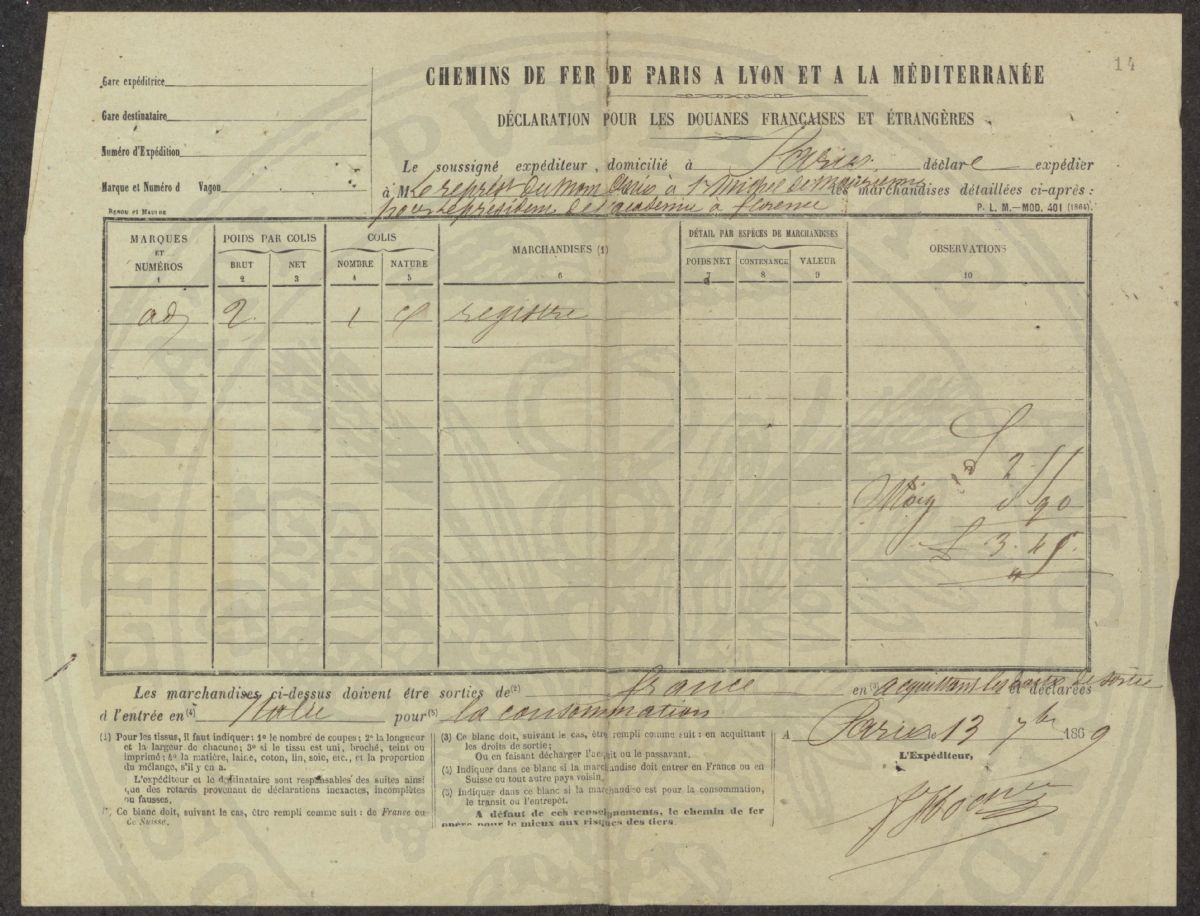 14
CHEMINS DE FER DE PARIS A LYON ET A LA MÉDITERRANÉE
DÉCLARATION POUR LES DOUANES FRANÇAISES ET ÉTRANGÈRES
Gare expéditrice
Gare destinataire
Numéro d'Expédition
Marque et Numéro d Vagon
RENOU ET MAULDE
Le soussigné expéditeur, domicilié à Paris déclare expédier
à M Le représt du mom à St Michel de Maurienne les marchandises détaillées ci-après :
pour le président de l'académie à florence
P. L. M.—MOD. 401 (1864).
MARQUES ET NUMÉROS 1
POIDS PAR COLIS
BRUT 2
NET 3
COLIS
NOMBRE 4
NATURE 5
MARCHANDISES (1) 6
DÉTAIL PAR ESPÈCES DE MARCHANDISES
POIDS NET 7
CONTENANCE 8
VALEUR 9
OBSERVATIONS 10
ad 2 1 registre
2.55
90
3.45
Les marchandises ci-dessus doivent être sorties de (2) france en (3) acquittant les droits de sortie et déclarées
à l'entrée en (4) Italie pour (5) la consommation
(1) Pour les tissus, il faut indiquer : 1º le nombre de coupes ; 2º la longueur
et la largeur de chacune ; 3º si le tissu est uni, broché, teint ou
imprimé ; 4º la matière, laine, coton, lin, soie, etc., et la proportion
du mélange, s'il y en a.
L'expéditeur et le destinataire sont responsables des suites ainsi
que des retards provenant de déclarations inexactes, incomplètes
ou fausses.
Ce blanc doit, suivant le cas, être rempli comme suit : de France ou
de Suisse.
(3) Ce blanc doit, suivant le cas, être rempli comme suit : en acquittant
les droits de sortie ;
Ou en faisant décharger l'acquit ou le passavant.
(4) Indiquer dans ce blanc si la marchandise doit entrer en France ou en
Suisse ou tout autre pays voisin.
(5) Indiquer dans ce blanc si la marchandise est pour la consommation,
le transit ou l'entrepôt.
A défaut de ces renseignements, le chemin de fer
opère pour le mieux aux risques des tiers.
A Paris 13 7bre 1869
L'Expéditeur,